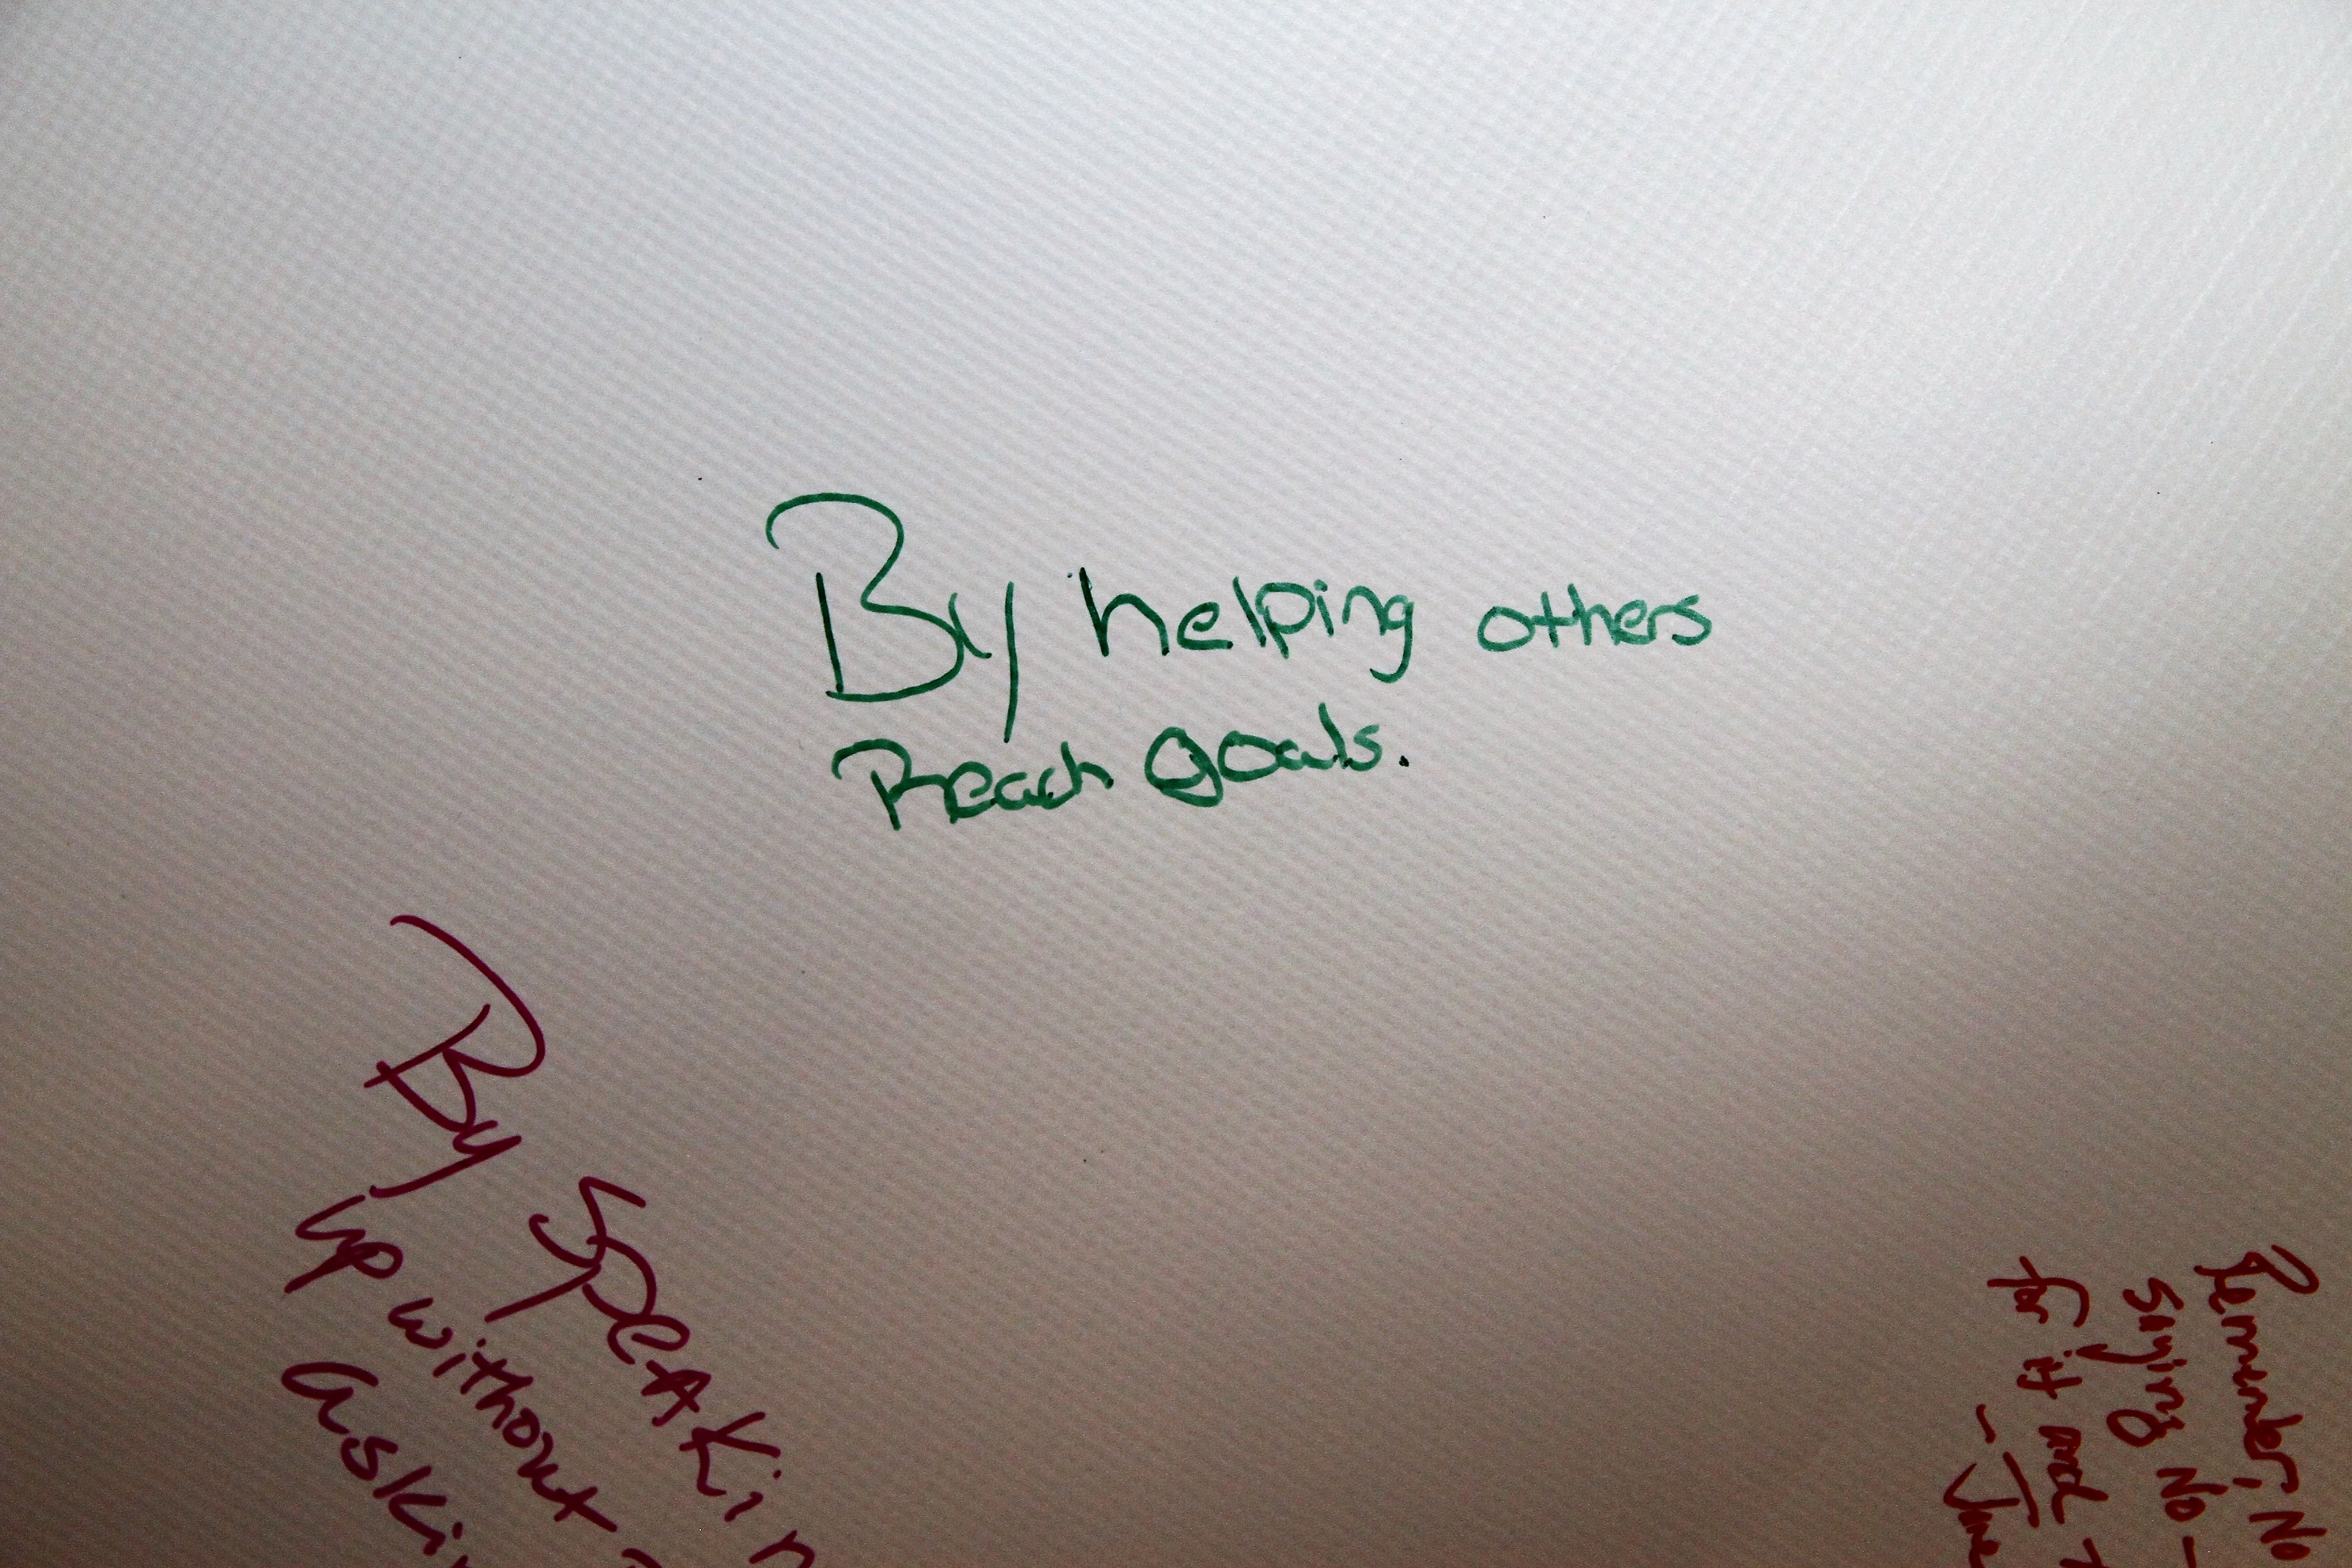 By helping others
Reach goals.
By Speakin
up without
askin
Remember, No
saying No -
for it and